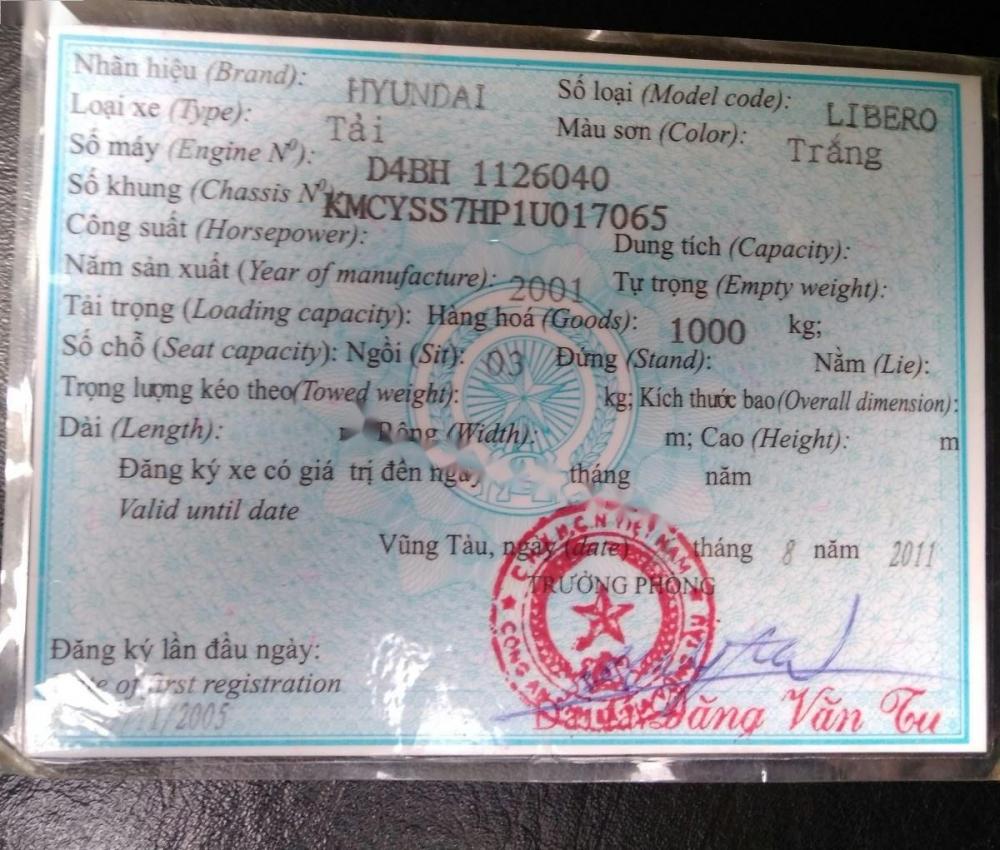 Nhãn hiệu (Brand): HYUNDAI Số loại (Model code): LIBERO
Loại xe (Type): Tải Màu sơn (Color): Trắng
Số máy (Engine Nº): D4BH 1126040
Số khung (Chassis Nº): KMCYSS7HP1U017065
Công suất (Horsepower): Dung tích (Capacity):
Năm sản xuất (Year of manufacture): 2001 Tự trọng (Empty weight):
Tải trọng (Loading capacity): Hàng hoá (Goods): 1000 kg;
Số chỗ (Seat capacity): Ngồi (Sit): 03 Đứng (Stand): Nằm (Lie):
Trọng lượng kéo theo(Towed weight): kg; Kích thước bao(Overall dimension):
Dài (Length): Rộng (Width): m; Cao (Height): m
Đăng ký xe có giá trị đến ngày tháng năm
Valid until date
Vũng Tàu, ngày (date) tháng 8 năm 2011
TRƯỞNG PHÒNG
C.H.X.H.C.N VIỆT NAM
CÔNG AN
Đăng ký lần đầu ngày:
of first registration
/11/2005
Đại tá Đăng Văn Tu